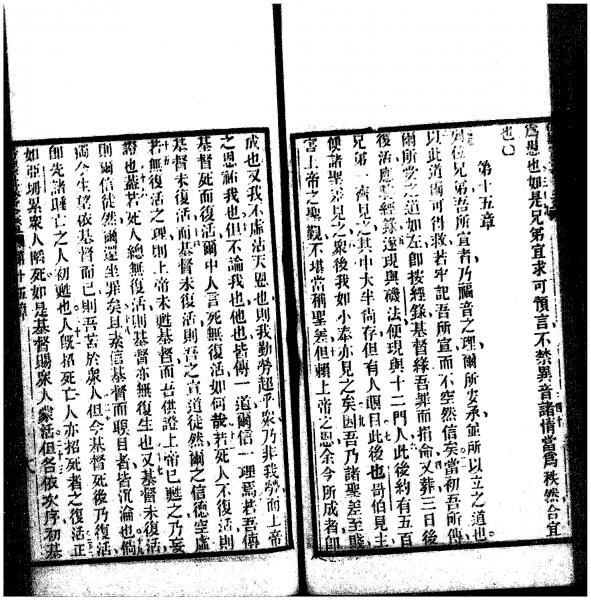 爲恩也如是兄弟宜求可預言不禁異音諸情當爲秩然合宜
也
第十五章
兄弟吾所宣者乃福音之理爾所妥承並所以立之道也
以此道爾可得救若牢記吾所宣而不空然信矣當初吾所傳
爾所受之道如左卽按經錄基督緣吾罪而捐命又葬三日後
復活應驗經錄遂現與磯法便現與十二門人此後約有五百
兄弟一齊見之其中大半尚存但有人瞑目此後也哥伯見主
便諸聖差見之衆後我如小奉亦見之矣因吾乃諸聖差至賤
害上帝之聖觀不堪當稱聖差但賴上帝之恩余今所成者卽
成也又我不虛沾天恩也則我勤勞超乎衆乃非我勞而上帝
之恩祐我也但不論我也他也皆傳一道爾信一理焉若吾傳
基督死而復活爾中人言死無復活如何哉若死人不復活則
基督未復活而基督未復活則吾之宣道徒然爾之信德空虛
若無復活之理則上帝未甦基督而吾供證上帝已甦之乃妄
證也蓋若死人總無復活則基督亦無復生也又基督未復活
則爾信徒然爾還坐罪矣且素信基督而瞑目者皆沉淪也倘
獨今生望依基督而已則吾苦於衆人但今基督死後乃復活
卽先諸睡亡之人初甦也人旣招死亡人亦招死者之復活正
如亞坍累衆人瀕死如是基督賜衆人蒙活但各依次序初基
第十五章